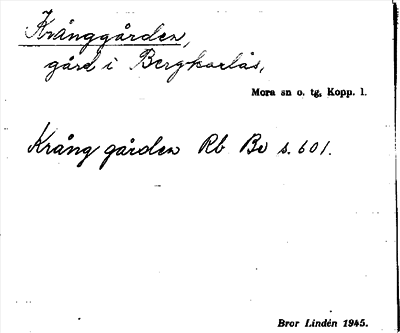 Krånggården,
gård i Bergkarlås,
Mora sn o. tg, Kopp. l.
Krång gården Rb Bo s. 601.
Bror Lindén 1945.